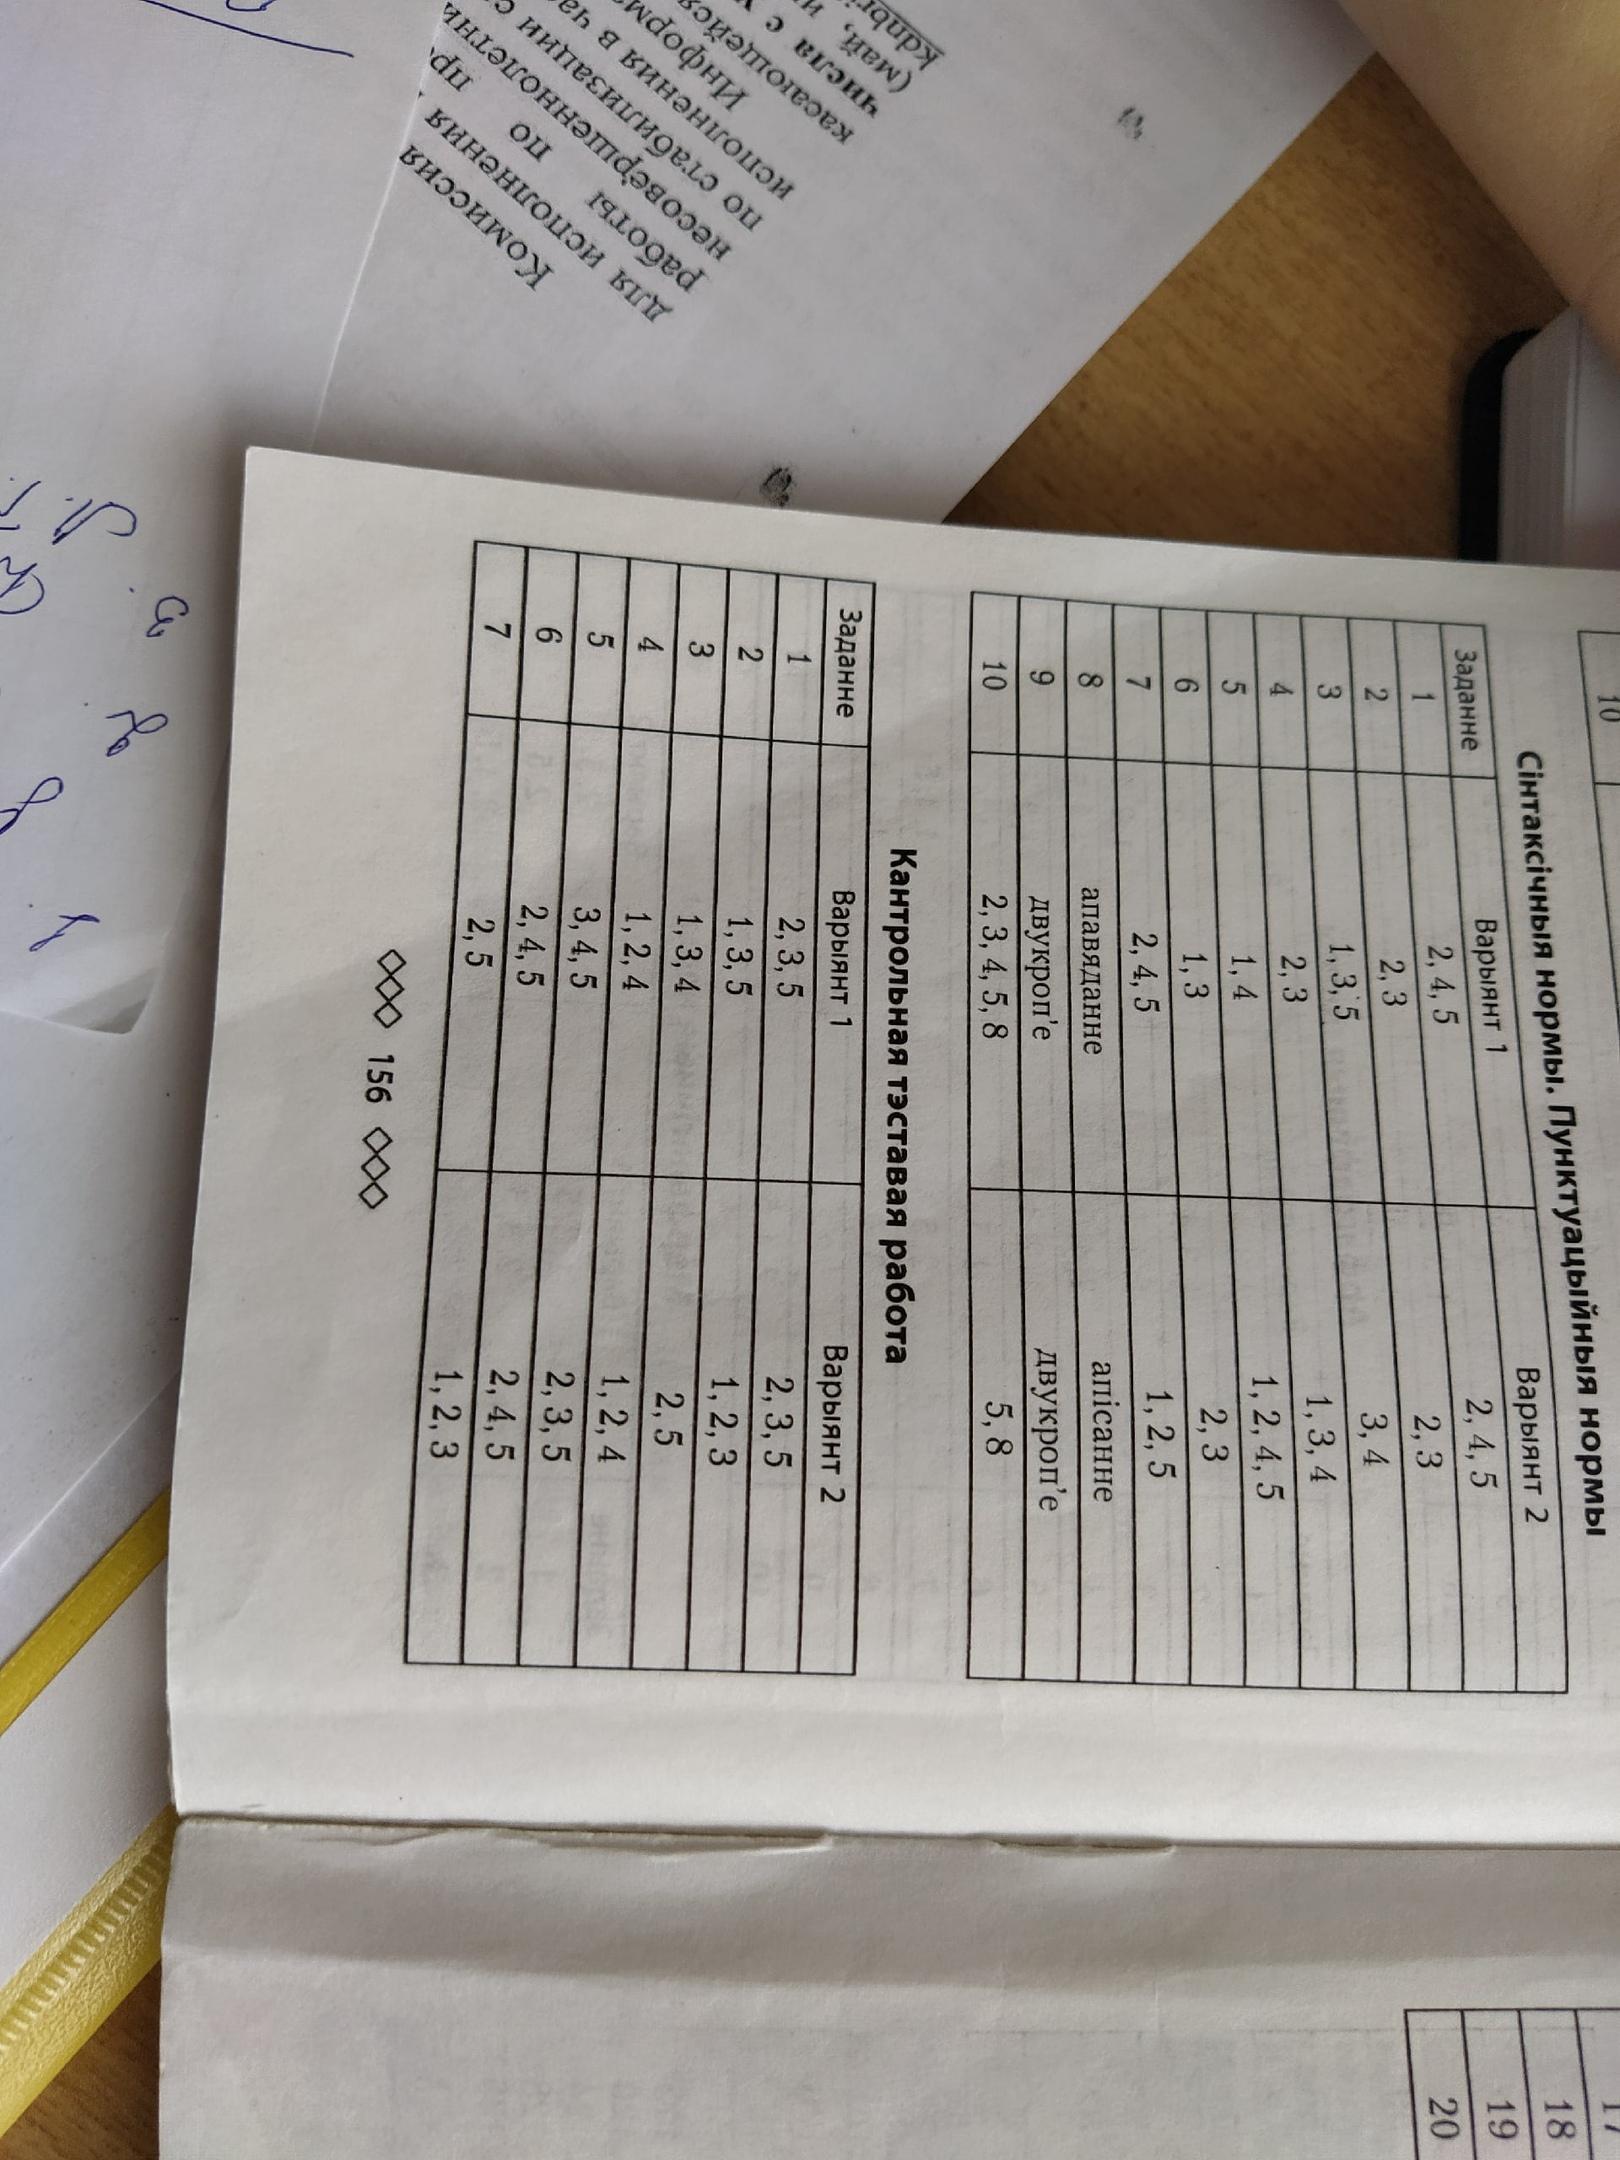 10
Сінтаксічныя нормы. Пунктуацыйныя нормы
Заданне Варыянт 1 Варыянт 2
1 2, 4, 5 2, 4, 5
2 2, 3 2, 3
3 1, 3, 5 3, 4
4 2, 3 1, 3, 4
5 1, 4 1, 2, 4, 5
6 1, 3 2, 3
7 2, 4, 5 1, 2, 5
8 апавяданне апісанне
9 двукроп'е двукроп'е
10 2, 3, 4, 5, 8 5, 8
Кантрольная тэставая работа
Заданне Варыянт 1 Варыянт 2
1 2, 3, 5 2, 3, 5
2 1, 3, 5 1, 2, 3
3 1, 3, 4 2, 5
4 1, 2, 4 1, 2, 4
5 3, 4, 5 2, 3, 5
6 2, 4, 5 2, 4, 5
7 2, 5 1, 2, 3
◇◇◇ 156 ◇◇◇
17
18
19
20
Комиссия
для исполнения
работы по
несовершеннолетн
по стабилизации с
исполнения в час
Информ
касающейся
числа с
(май, и
kdnbri